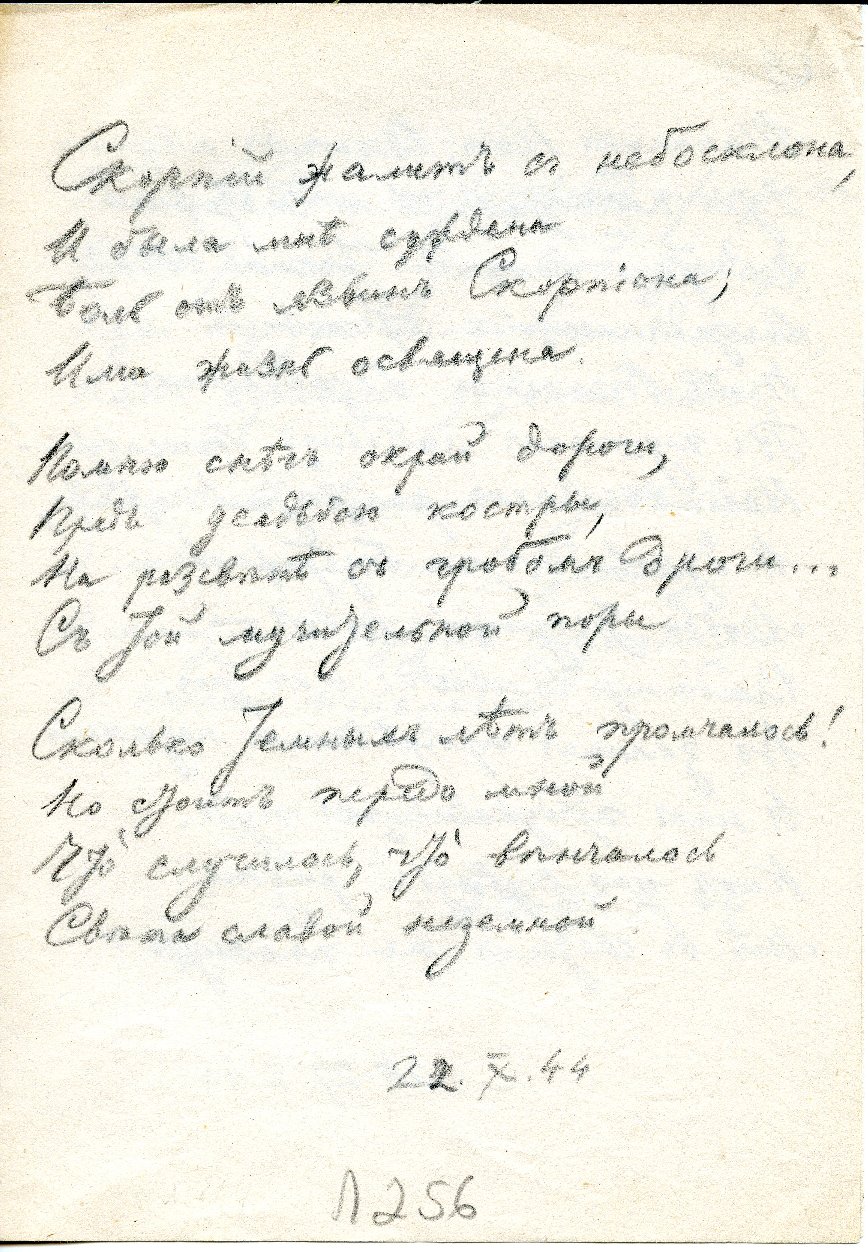 Скорпій жалитъ съ небосклона,
И была мнѣ суждена
Боль отъ язвинъ Скорпіона;
Има жизнь освящена.
Помню снѣгъ окрай дороги,
Предъ усадьбою костры,
На разсвѣтѣ съ гробомъ дроги...
Съ той мучительной поры
Сколько земныхъ лѣтъ промчалось!
Но стоитъ передо мной
Что̀ случилось, что̀ вѣнчалось
Свѣта славой неземной
22. X. 44
Л 256